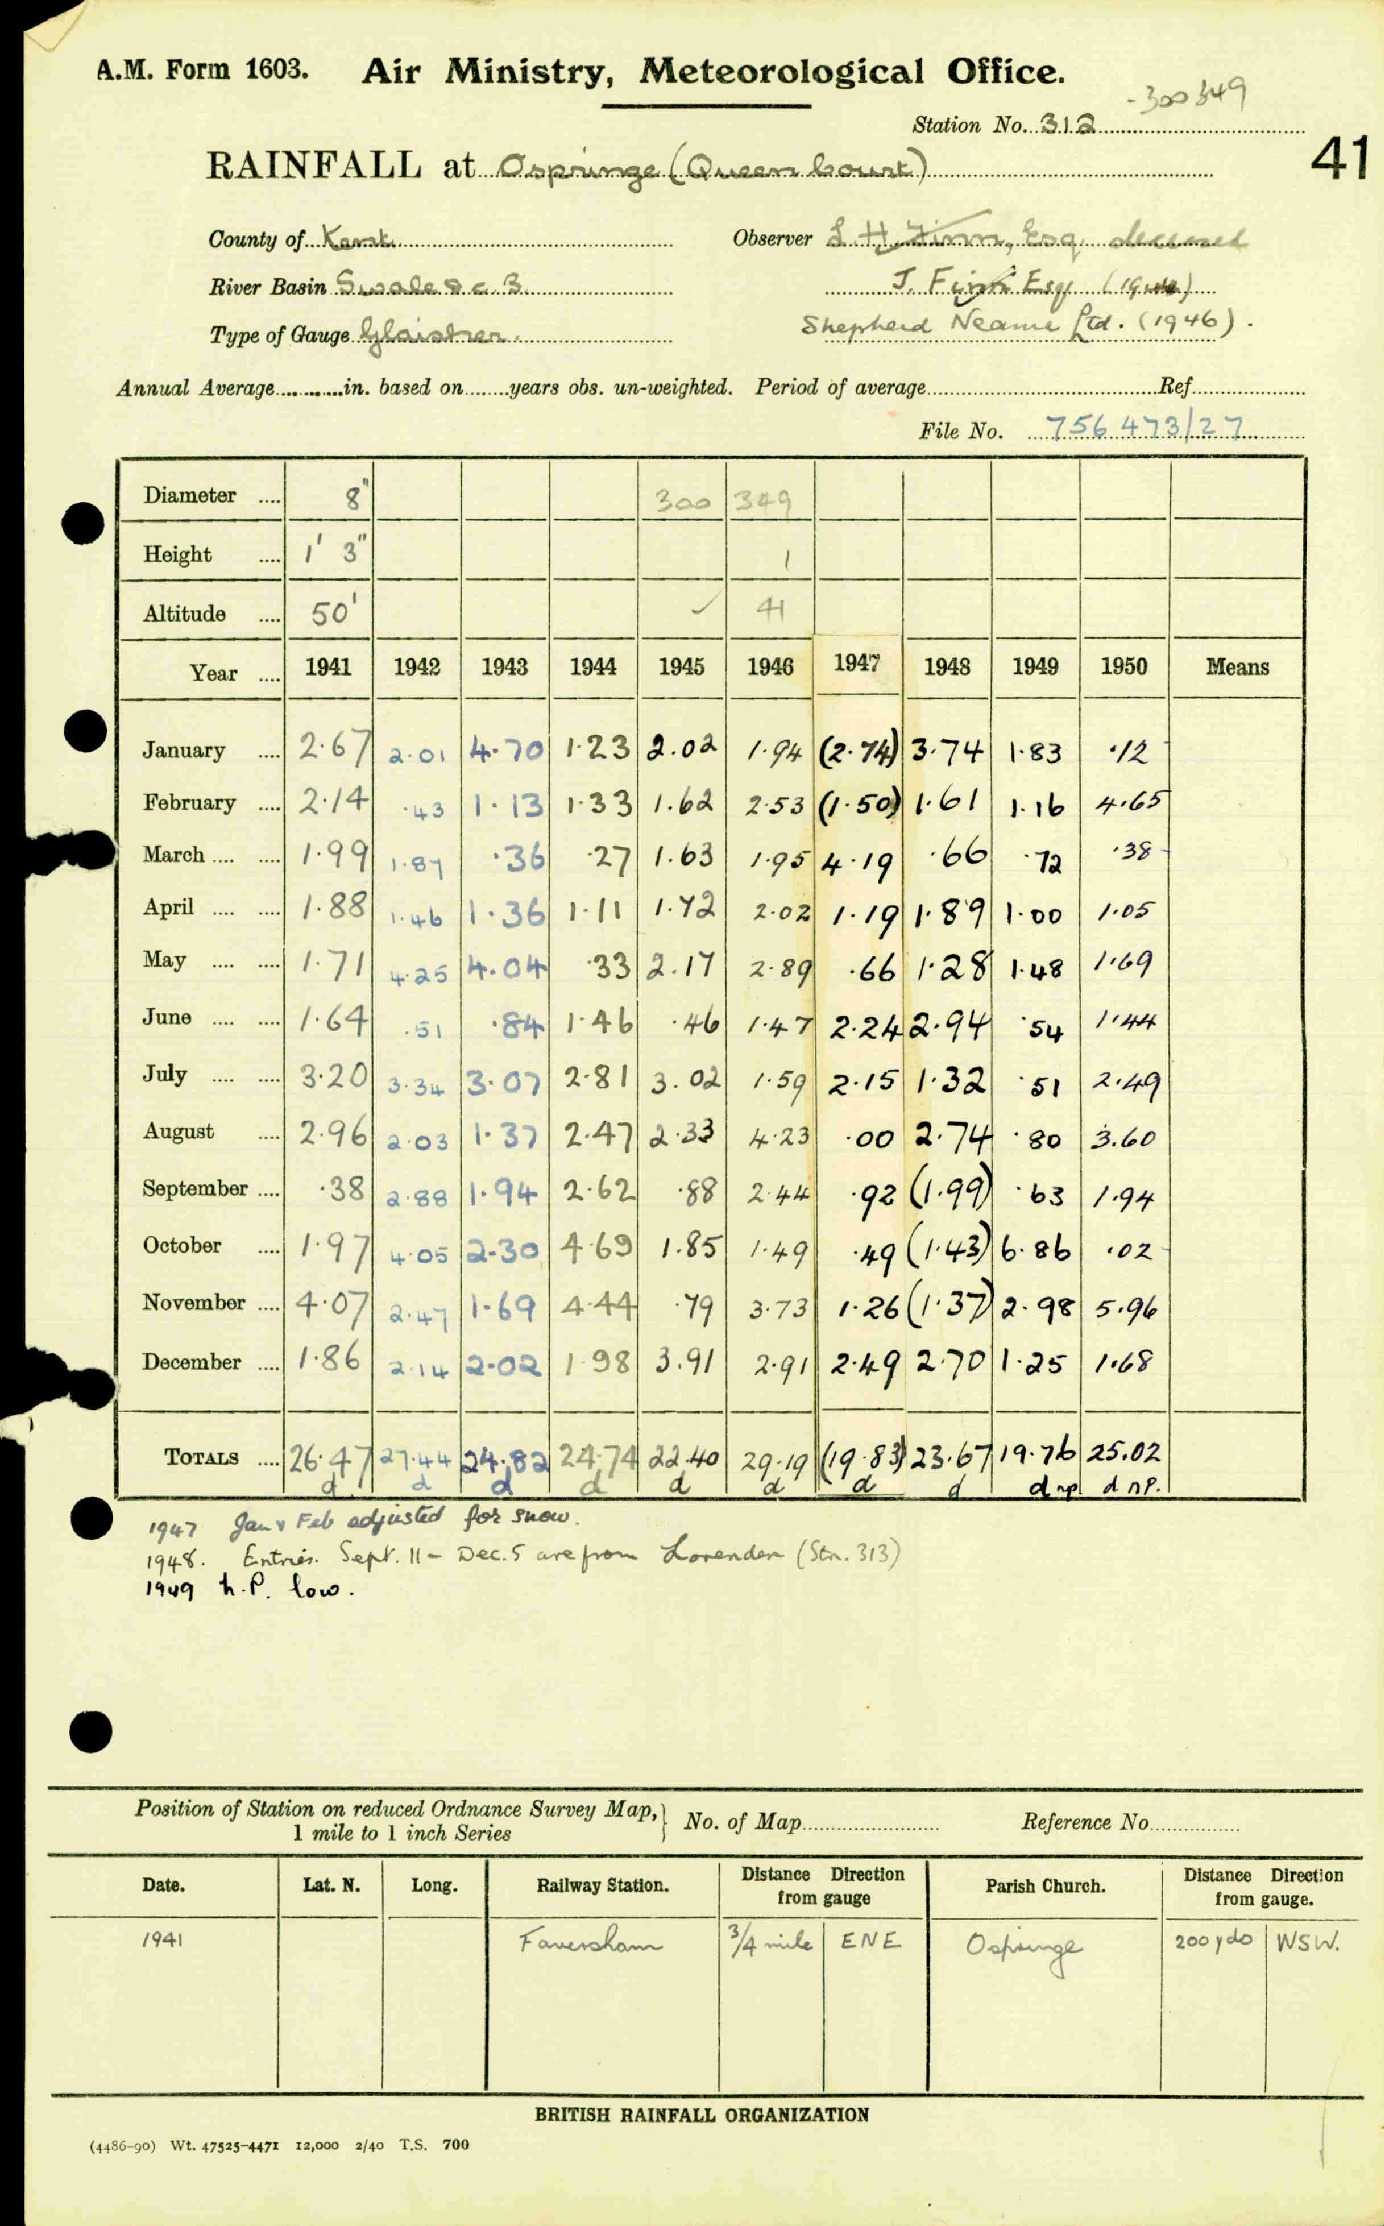 A.M. Form 1603. Air Ministry, Meteorological Office.
-300349
Station No. 312
41
RAINFALL at Ospringe (Queen Court)
County of Kent Observer L H Finn, Esq. deceased
River Basin Swale &c B. J. Finn Esq (1944)
Type of Gauge Glaisher. Shepherd Neame Ltd. (1946).
Annual Average in. based on years obs. un-weighted. Period of average Ref
File No. 756473/27
Diameter 8" 300 349
Height 1' 3" 1
Altitude 50' ✓ 41
Year 1941 1942 1943 1944 1945 1946 1947 1948 1949 1950 Means
January 2.67 2.01 4.70 1.23 2.02 1.94 (2.74) 3.74 1.83 .12
February 2.14 .43 1.13 1.33 1.62 2.53 (1.50) 1.61 1.16 4.65
March 1.99 1.87 .36 .27 1.63 1.95 4.19 .66 .72 .38
April 1.88 1.46 1.36 1.11 1.72 2.02 1.19 1.89 1.00 1.05
May 1.71 4.25 4.04 .33 2.17 2.89 .66 1.28 1.48 1.69
June 1.64 .51 .84 1.46 .46 1.47 2.24 2.94 .54 1.44
July 3.20 3.34 3.07 2.81 3.02 1.59 2.15 1.32 .51 2.49
August 2.96 2.03 1.37 2.47 2.33 4.23 .00 2.74 .80 3.60
September .38 2.88 1.94 2.62 .88 2.44 .92 (1.99) .63 1.94
October 1.97 4.05 2.30 4.69 1.85 1.49 .49 (1.43) 6.86 .02
November 4.07 2.47 1.69 4.44 .79 3.73 1.26 (1.37) 2.98 5.96
December 1.86 2.14 2.02 1.98 3.91 2.91 2.49 2.70 1.25 1.68
TOTALS 26.47 27.44 24.82 24.74 22.40 29.19 (19.83) 23.67 19.76 25.02
d d d d d d d d d np. d nP.
1947 Jan & Feb adjusted for snow.
1948. Entries Sept. 11 - Dec. 5 are from Lorenden (Stn. 313)
1949 h.P. low.
Position of Station on reduced Ordnance Survey Map, 1 mile to 1 inch Series } No. of Map Reference No
Date. Lat. N. Long. Railway Station. Distance Direction from gauge Parish Church. Distance Direction from gauge.
1941 Faversham 3/4 mile ENE Ospringe 200 yds WSW.
BRITISH RAINFALL ORGANIZATION
(4486-90) Wt. 47525-4471 12,000 2/40 T.S. 700